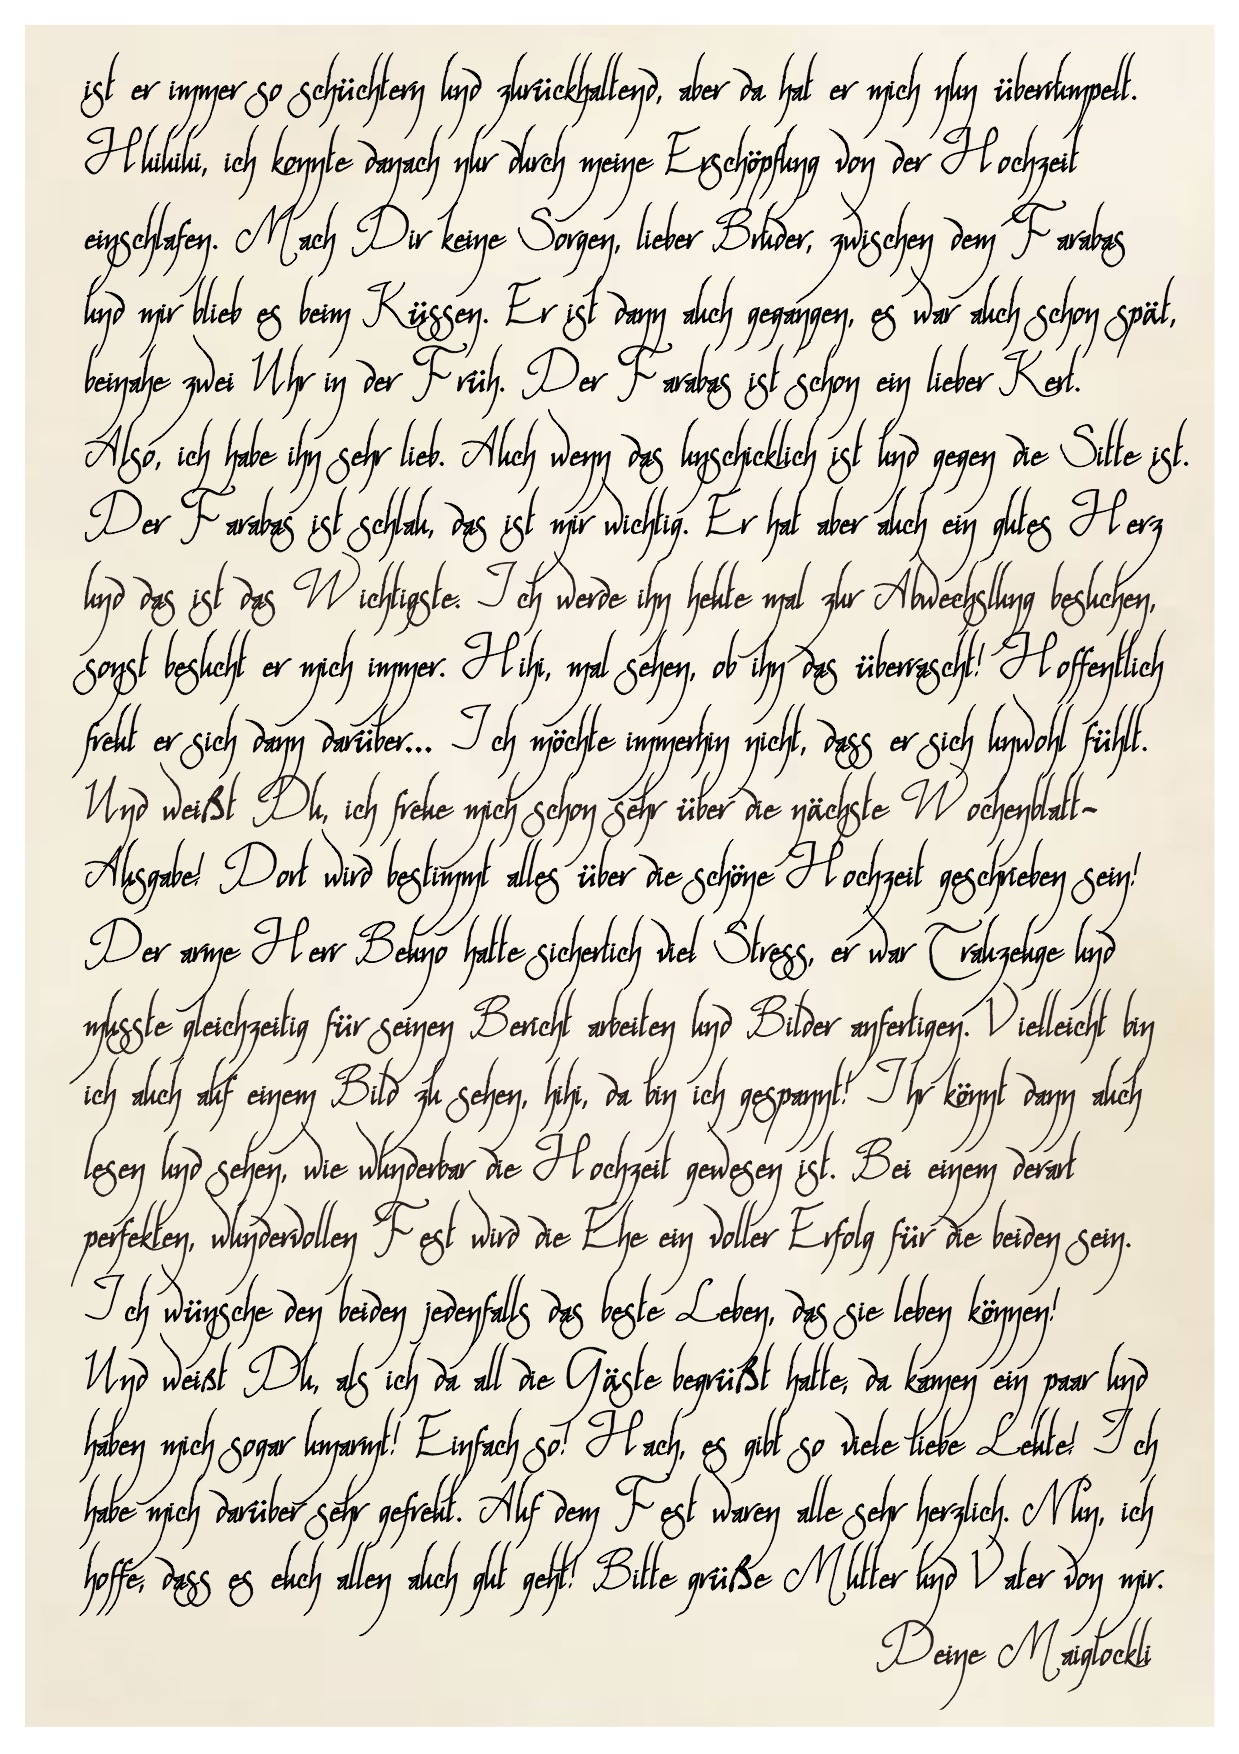 ist er immer so schüchtern und zurückhaltend, aber da hat er mich nun überrumpelt.
Huihihi, ich konnte danach nur durch meine Erschöpfung von der Hochzeit
einschlafen. Mach Dir keine Sorgen, lieber Bruder, zwischen dem Farabas
und mir blieb es beim Küssen. Er ist dann auch gegangen, es war auch schon spät,
beinahe zwei Uhr in der Früh. Der Farabas ist schon ein lieber Kerl.
Also, ich habe ihn sehr lieb. Auch wenn das unschicklich ist und gegen die Sitte ist.
Der Farabas ist schlau, das ist mir wichtig. Er hat aber auch ein gutes Herz
und das ist das Wichtigste. Ich werde ihn heute mal zur Abwechslung besuchen,
sonst besucht er mich immer. Hihi, mal sehen, ob ihn das überrascht! Hoffentlich
freut er sich dann darüber... Ich möchte immerhin nicht, dass er sich unwohl fühlt.
Und weißt Du, ich freue mich schon sehr über die nächste Wochenblatt-
Ausgabe! Dort wird bestimmt alles über die schöne Hochzeit geschrieben sein!
Der arme Herr Beuno hatte sicherlich viel Stress, er war Trauzeuge und
musste gleichzeitig für seinen Bericht arbeiten und Bilder anfertigen. Vielleicht bin
ich auch auf einem Bild zu sehen, hihi, da bin ich gespannt! Ihr könnt dann auch
lesen und sehen, wie wunderbar die Hochzeit gewesen ist. Bei einem derart
perfekten, wundervollen Fest wird die Ehe ein voller Erfolg für die beiden sein.
Ich wünsche den beiden jedenfalls das beste Leben, das sie leben können!
Und weißt Du, als ich da all die Gäste begrüßt hatte, da kamen ein paar und
haben mich sogar umarmt! Einfach so! Hach, es gibt so viele liebe Leute! Ich
habe mich darüber sehr gefreut. Auf dem Fest waren alle sehr herzlich. Nun, ich
hoffe, dass es euch allen auch gut geht! Bitte grüße Mutter und Vater von mir.
Deine Maiglöckli